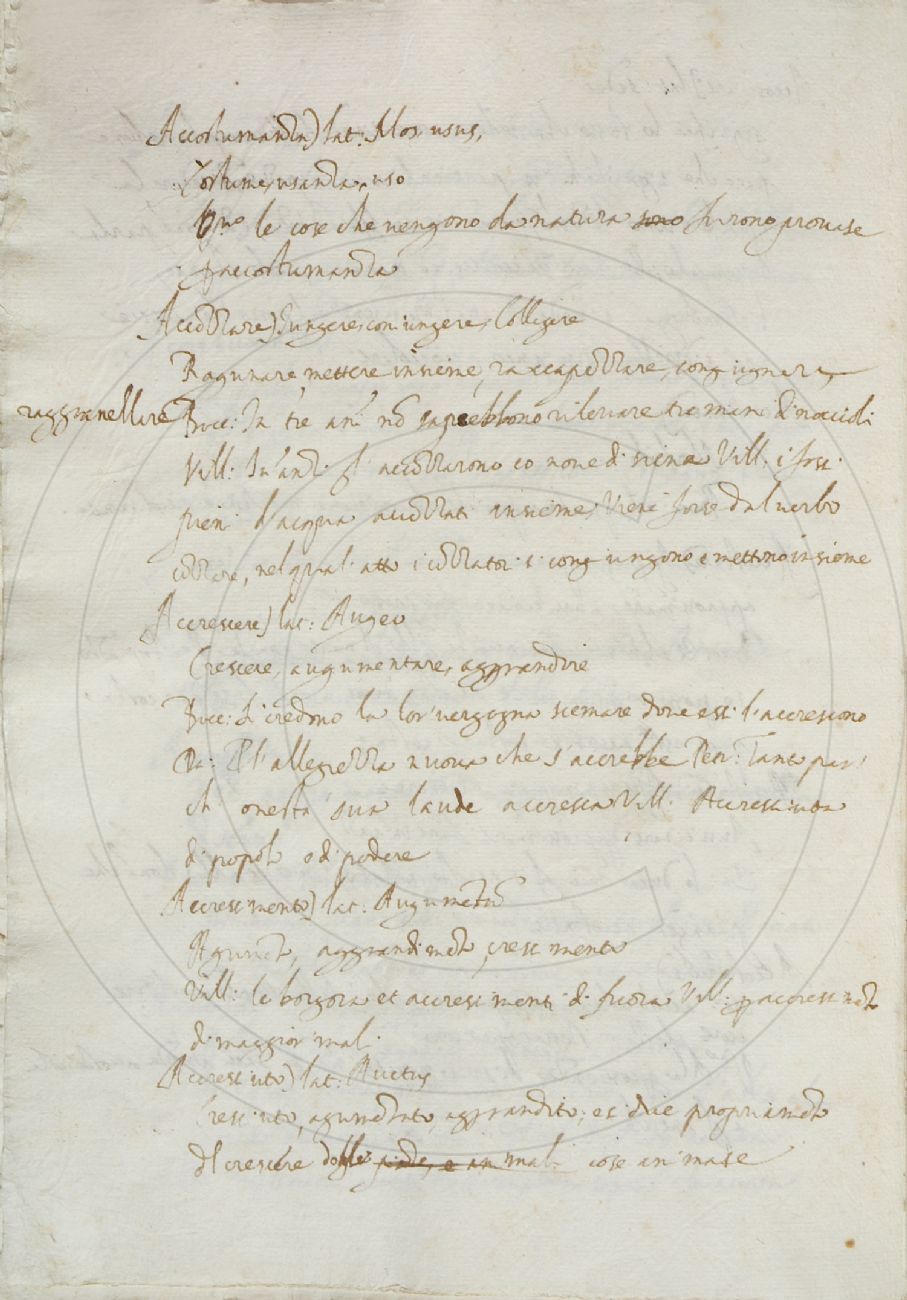 Accostumanza) lat: Mos, usus,
Costume, usanza, uso
le cose che vengono da natura sono furono provase
p accostumanza
Accozzare) Iungere, coniungere, Colligere
Ragunare, mettere insieme, raccapezzare, congiugnare
raggranellare
Bocc: In tre anî nõ saprebbono rilevare tre mani di noccioli
Vill: accozzarono co none di siena Vill. i fossi
pieni d'acqua accozzati insieme, Viene forse dal verbo
cozzare, nel qual' atto i cozzatori si congiungono e mettono insieme
Accrescere) lat: Augeo
Crescere, augumentare, aggrandire
Bocc: Si credono la lor' vergogna scemare dove essi l'accrescono
Da: P l'allegrezza nuova che s'accrebbe Petr: Tanto par'
ch' onesta sua laude accresca Vill. Accresciuta
di popolo e di podere
Accrescimento) lat: Augumẽtũ
Agiunta, aggrandimẽto, crescimento
Vill: le borgora et accrescimenti di fuora Vill: p accrescimẽto
di maggior mali
Accresciuto) lat: Auctus
Cresciuto, agumẽtato, aggrandito, e si dice propriamẽte
del crescere delle piante, e animali cose animate